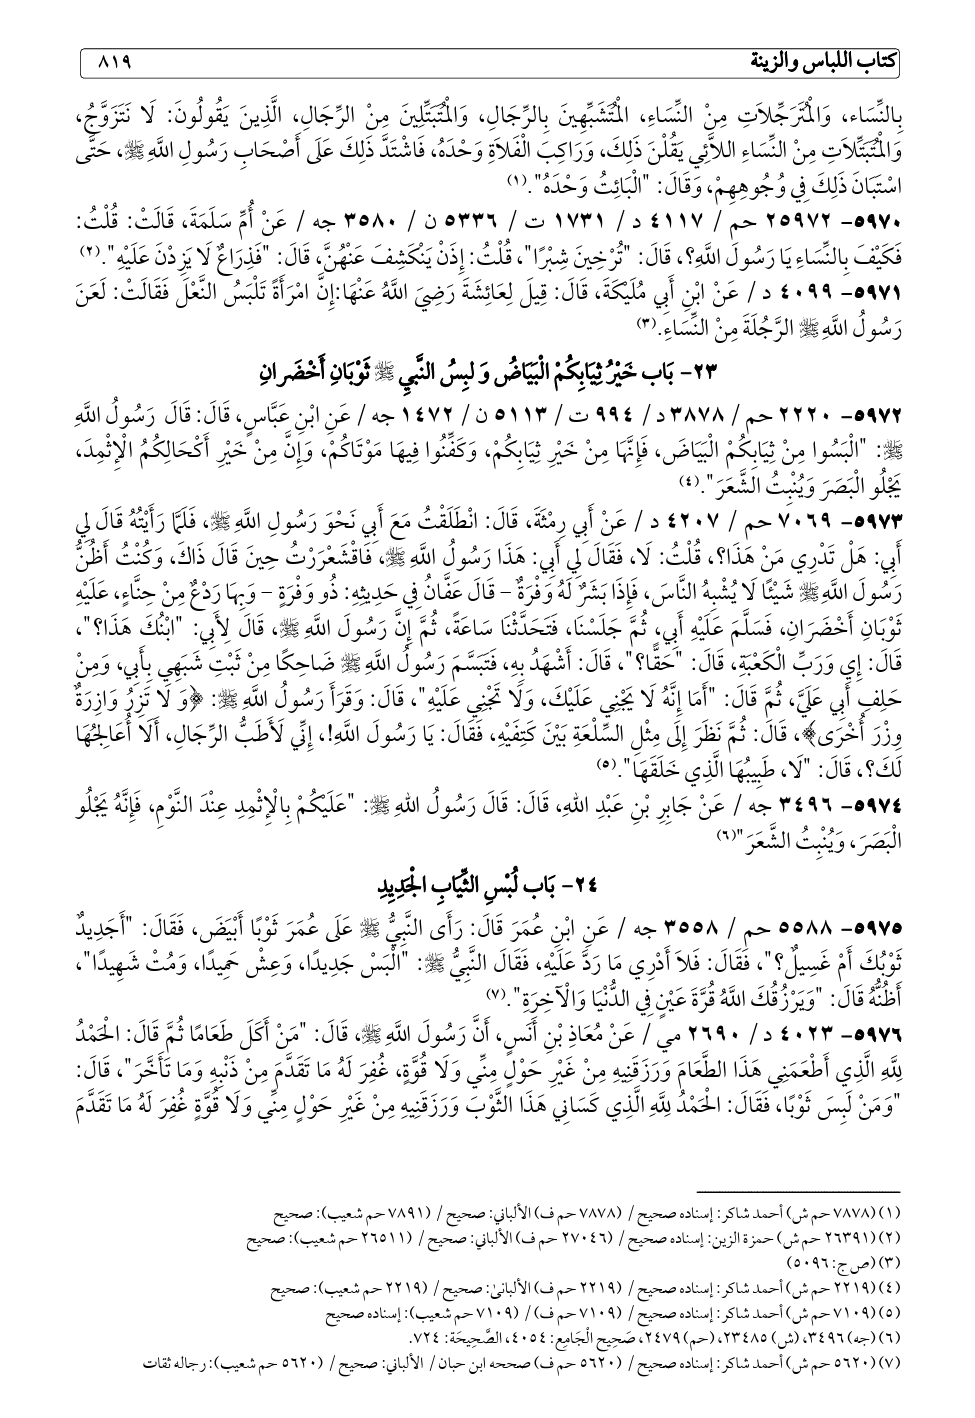 كتاب اللباس والزينة ٨١٩
بِالنِّسَاء، وَالْمُتَرَجِّلاَتِ مِنْ النِّسَاءِ، الْمُتَشَبِّهِينَ بِالرِّجَالِ، وَالْمُتَبَتِّلِينَ مِنْ الرِّجَالِ، الَّذِينَ يَقُولُونَ: لَا نَتَزَوَّجُ،
وَالْمُتَبَتِّلَاتِ مِنْ النِّسَاءِ اللاَّئِي يَقُلْنَ ذَلِكَ، وَرَاكِبَ الْفَلاَةِ وَحْدَهُ، فَاشْتَدَّ ذَلِكَ عَلَى أَصْحَابِ رَسُولِ اللَّهِ ﷺ، حَتَّى
اسْتَبَانَ ذَلِكَ فِي وُجُوهِهِمْ، وَقَالَ: "الْبَائِتُ وَحْدَهُ".(١)
٥٩٧٠- ٢٥٩٧٢ حم / ٤١١٧ د / ١٧٣١ ت / ٥٣٣٦ ن / ٣٥٨٠ جه / عَنْ أُمِّ سَلَمَةَ، قَالَتْ: قُلْتُ:
فَكَيْفَ بِالنِّسَاءِ يَا رَسُولَ اللَّهِ؟، قَالَ: "تُرْخِينَ شِبْرًا"، قُلْتُ: إِذَنْ يَنْكَشِفَ عَنْهُنَّ، قَالَ: "فَذِرَاعٌ لَا يَزِدْنَ عَلَيْهِ".(٢)
٥٩٧١- ٤٠٩٩ د/ عَنْ ابْنِ أَبِي مُلَيْكَةَ، قَالَ: قِيلَ لِعَائِشَةَ رَضِيَ اللَّهُ عَنْهَا:إِنَّ امْرَأَةً تَلْبَسُ النَّعْلَ فَقَالَتْ: لَعَنَ
رَسُولُ اللَّهِ ﷺ الرَّجُلَةَ مِنْ النِّسَاءِ.(٣)
٢٣- بَاب خَيْرُ ثِيَابِكُمْ الْبَيَاضُ وَ لبِسُ النَّبِيِ ﷺ ثَوْبَانِ أَخْضَرانِ
٥٩٧٢- ٢٢٢٠ حم / ٣٨٧٨ د/ ٩٩٤ ت / ٥١١٣ ن / ١٤٧٢ جه / عَنِ ابْنِ عَبَّاسٍ، قَالَ: قَالَ رَسُولُ اللَّهِ
ﷺ: "الْبَسُوا مِنْ ثِيَابِكُمْ الْبَيَاضَ، فَإِنَّهَا مِنْ خَيْرِ ثِيَابِكُمْ، وَكَفِّنُوا فِيهَا مَوْتَاكُمْ، وَإِنَّ مِنْ خَيْرِ أَكْحَالِكُمُ الْإِثْمِدَ،
يَجْلُو الْبَصَرَ وَيُنْبِتُ الشَّعَرَ".(٤)
٥٩٧٣- ٧٠٦٩ حم / ٤٢٠٧ د / عَنْ أَبِي رِمْثَةَ، قَالَ: انْطَلَقْتُ مَعَ أَبِي نَحْوَ رَسُولِ اللَّهِ ﷺ، فَلَمَّا رَأَيْتُهُ قَالَ لِي
أَبِي: هَلْ تَدْرِي مَنْ هَذَا؟، قُلْتُ: لَا، فَقَالَ لِي أَبِي: هَذَا رَسُولُ اللَّهِ ﷺ، فَاقْشَعْرَرْتُ حِينَ قَالَ ذَاكَ، وَكُنْتُ أَظُنُّ
رَسُولَ اللَّهِ ﷺ شَيْئًا لَا يُشْبِهُ النَّاسَ، فَإِذَا بَشَرٌ لَهُ وَفْرَةٌ – قَالَ عَفَّانُ فِي حَدِيثِهِ: ذُو وَفْرَةٍ – وَبِهَا رَدْعٌ مِنْ حِنَّاءٍ، عَلَيْهِ
ثَوْبَانِ أَخْضَرَانِ، فَسَلَّمَ عَلَيْهِ أَبِي، ثُمَّ جَلَسْنَا، فَتَحَدَّثْنَا سَاعَةً، ثُمَّ إِنَّ رَسُولَ اللَّهِ ﷺ، قَالَ لِأَبِي: "ابْنُكَ هَذَا؟"،
قَالَ: إِي وَرَبِّ الْكَعْبَةِ، قَالَ: "حَقًّا؟"، قَالَ: أَشْهَدُ بِهِ، فَتَبَسَّمَ رَسُولُ اللَّهِ ﷺ ضَاحِكًا مِنْ ثَبْتِ شَبَهِي بِأَبِي، وَمِنْ
حَلِفِ أَبِي عَلَيَّ، ثُمَّ قَالَ: "أَمَا إِنَّهُ لَا يَجْنِي عَلَيْكَ، وَلَا تَجْنِي عَلَيْهِ"، قَالَ: وَقَرَأَ رَسُولُ اللَّهِ ﷺ: ﴿وَ لَا تَزِرُ وَازِرَةٌ
وِزْرَ أُخْرَى﴾، قَالَ: ثُمَّ نَظَرَ إِلَى مِثْلِ السِّلْعَةِ بَيْنَ كَتِفَيْهِ، فَقَالَ: يَا رَسُولَ اللَّهِ!، إِنِّي لَأَطَبُّ الرِّجَالِ، أَلَا أُعَالِجُهَا
لَكَ؟، قَالَ: "لَا، طَبِيبُهَا الَّذِي خَلَقَهَا".(٥)
٥٩٧٤- ٣٤٩٦ جه / عَنْ جَابِرِ بْنِ عَبْدِ اللهِ، قَالَ: قَالَ رَسُولُ اللهِ ﷺ: "عَلَيْكُمْ بِالْإِثْمِدِ عِنْدَ النَّوْمِ، فَإِنَّهُ يَجْلُو
الْبَصَرَ، وَيُنْبِتُ الشَّعَرَ"(٦)
٢٤- بَاب لُبْسِ الثِّيَابِ الْجَدِيدِ
٥٩٧٥- ٥٥٨٨ حم / ٣٥٥٨ جه / عَنِ ابْنِ عُمَرَ قَالَ: رَأَى النَّبِيُّ ﷺ عَلَى عُمَرَ ثَوْبًا أَبْيَضَ، فَقَالَ: "أَجَدِيدٌ
ثَوْبُكَ أَمْ غَسِيلٌ؟"، فَقَالَ: فَلاَ أَدْرِي مَا رَدَّ عَلَيْهِ، فَقَالَ النَّبِيُّ ﷺ: "الْبَسْ جَدِيدًا، وَعِشْ حَمِيدًا، وَمُتْ شَهِيدًا"،
أَظُنُّهُ قَالَ: "وَيَرْزُقُكَ اللَّهُ قُرَّةَ عَيْنٍ فِي الدُّنْيَا وَالْآخِرَةِ".(٧)
٥٩٧٦- ٤٠٢٣ د/ ٢٦٩٠ مي / عَنْ مُعَاذِ بْنِ أَنَسٍ، أَنَّ رَسُولَ اللَّهِ ﷺ، قَالَ: "مَنْ أَكَلَ طَعَامًا ثُمَّ قَالَ: الْحَمْدُ
لِلَّهِ الَّذِي أَطْعَمَنِي هَذَا الطَّعَامَ وَرَزَقَنِيهِ مِنْ غَيْرِ حَوْلٍ مِنِّي وَلَا قُوَّةٍ، غُفِرَ لَهُ مَا تَقَدَّمَ مِنْ ذَنْبِهِ وَمَا تَأَخَّرَ"، قَالَ:
"وَمَنْ لَبِسَ ثَوْبًا، فَقَالَ: الْحَمْدُ لِلَّهِ الَّذِي كَسَانِي هَذَا الثَّوْبَ وَرَزَقَنِيهِ مِنْ غَيْرِ حَوْلٍ مِنِّي وَلَا قُوَّةٍ غُفِرَ لَهُ مَا تَقَدَّمَ
(١) (٧٨٧٨ حم ش) أحمد شاكر: إسناده صحيح / (٧٨٧٨ حم ف) الألباني: صحيح / (٧٨٩١ حم شعيب): صحيح
(٢) (٢٦٣٩١ حم ش) حمزة الزين: إسناده صحيح / (٢٧٠٤٦ حم ف) الألباني: صحيح / (٢٦٥١١ حم شعيب): صحيح
(٣) (ص ج: ٥٠٩٦)
(٤) (٢٢١٩ حم ش) أحمد شاكر: إسناده صحيح / (٢٢١٩ حم ف) الألبانىٰ: صحيح / (٢٢١٩ حم شعيب): صحيح
(٥) (٧١٠٩ حم ش) أحمد شاكر: إسناده صحيح / (٧١٠٩ حم ف) / (٧١٠٩ حم شعيب): إسناده صحيح
(٦) (جه) ٣٤٩٦، (ش) ٢٣٤٨٥، (حم) ٢٤٧٩، صَحِيح الْجَامِع: ٤٠٥٤، الصَّحِيحَة: ٧٢٤.
(٧) (٥٦٢٠ حم ش) أحمد شاكر: إسناده صحيح / (٥٦٢٠ حم ف) صححه ابن حبان / الألباني: صحيح / (٥٦٢٠ حم شعيب): رجاله ثقات